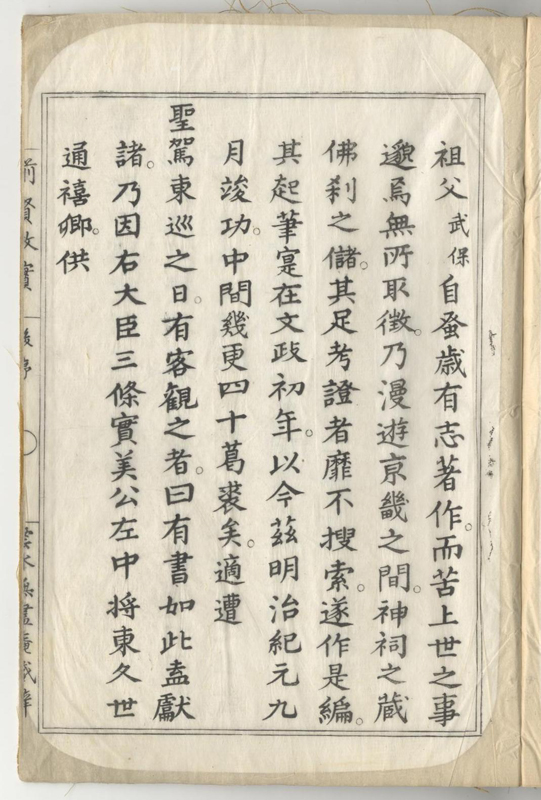 祖父武保自蚤歳有志著作。而苦上世之事
邈焉無所取徴。乃漫遊京畿之間。神祠之蔵
佛刹之儲。其足考證者靡不搜索。遂作是編。
其起筆寔在文政初年。以今茲明治紀元九
月竣功。中間幾更四十葛裘矣。適遭
聖駕東巡之日。有客觀之者。曰有書如此盍獻
諸。乃因右大臣三條實美公左中将東久世
通禧卿。供
前賢故實 後序